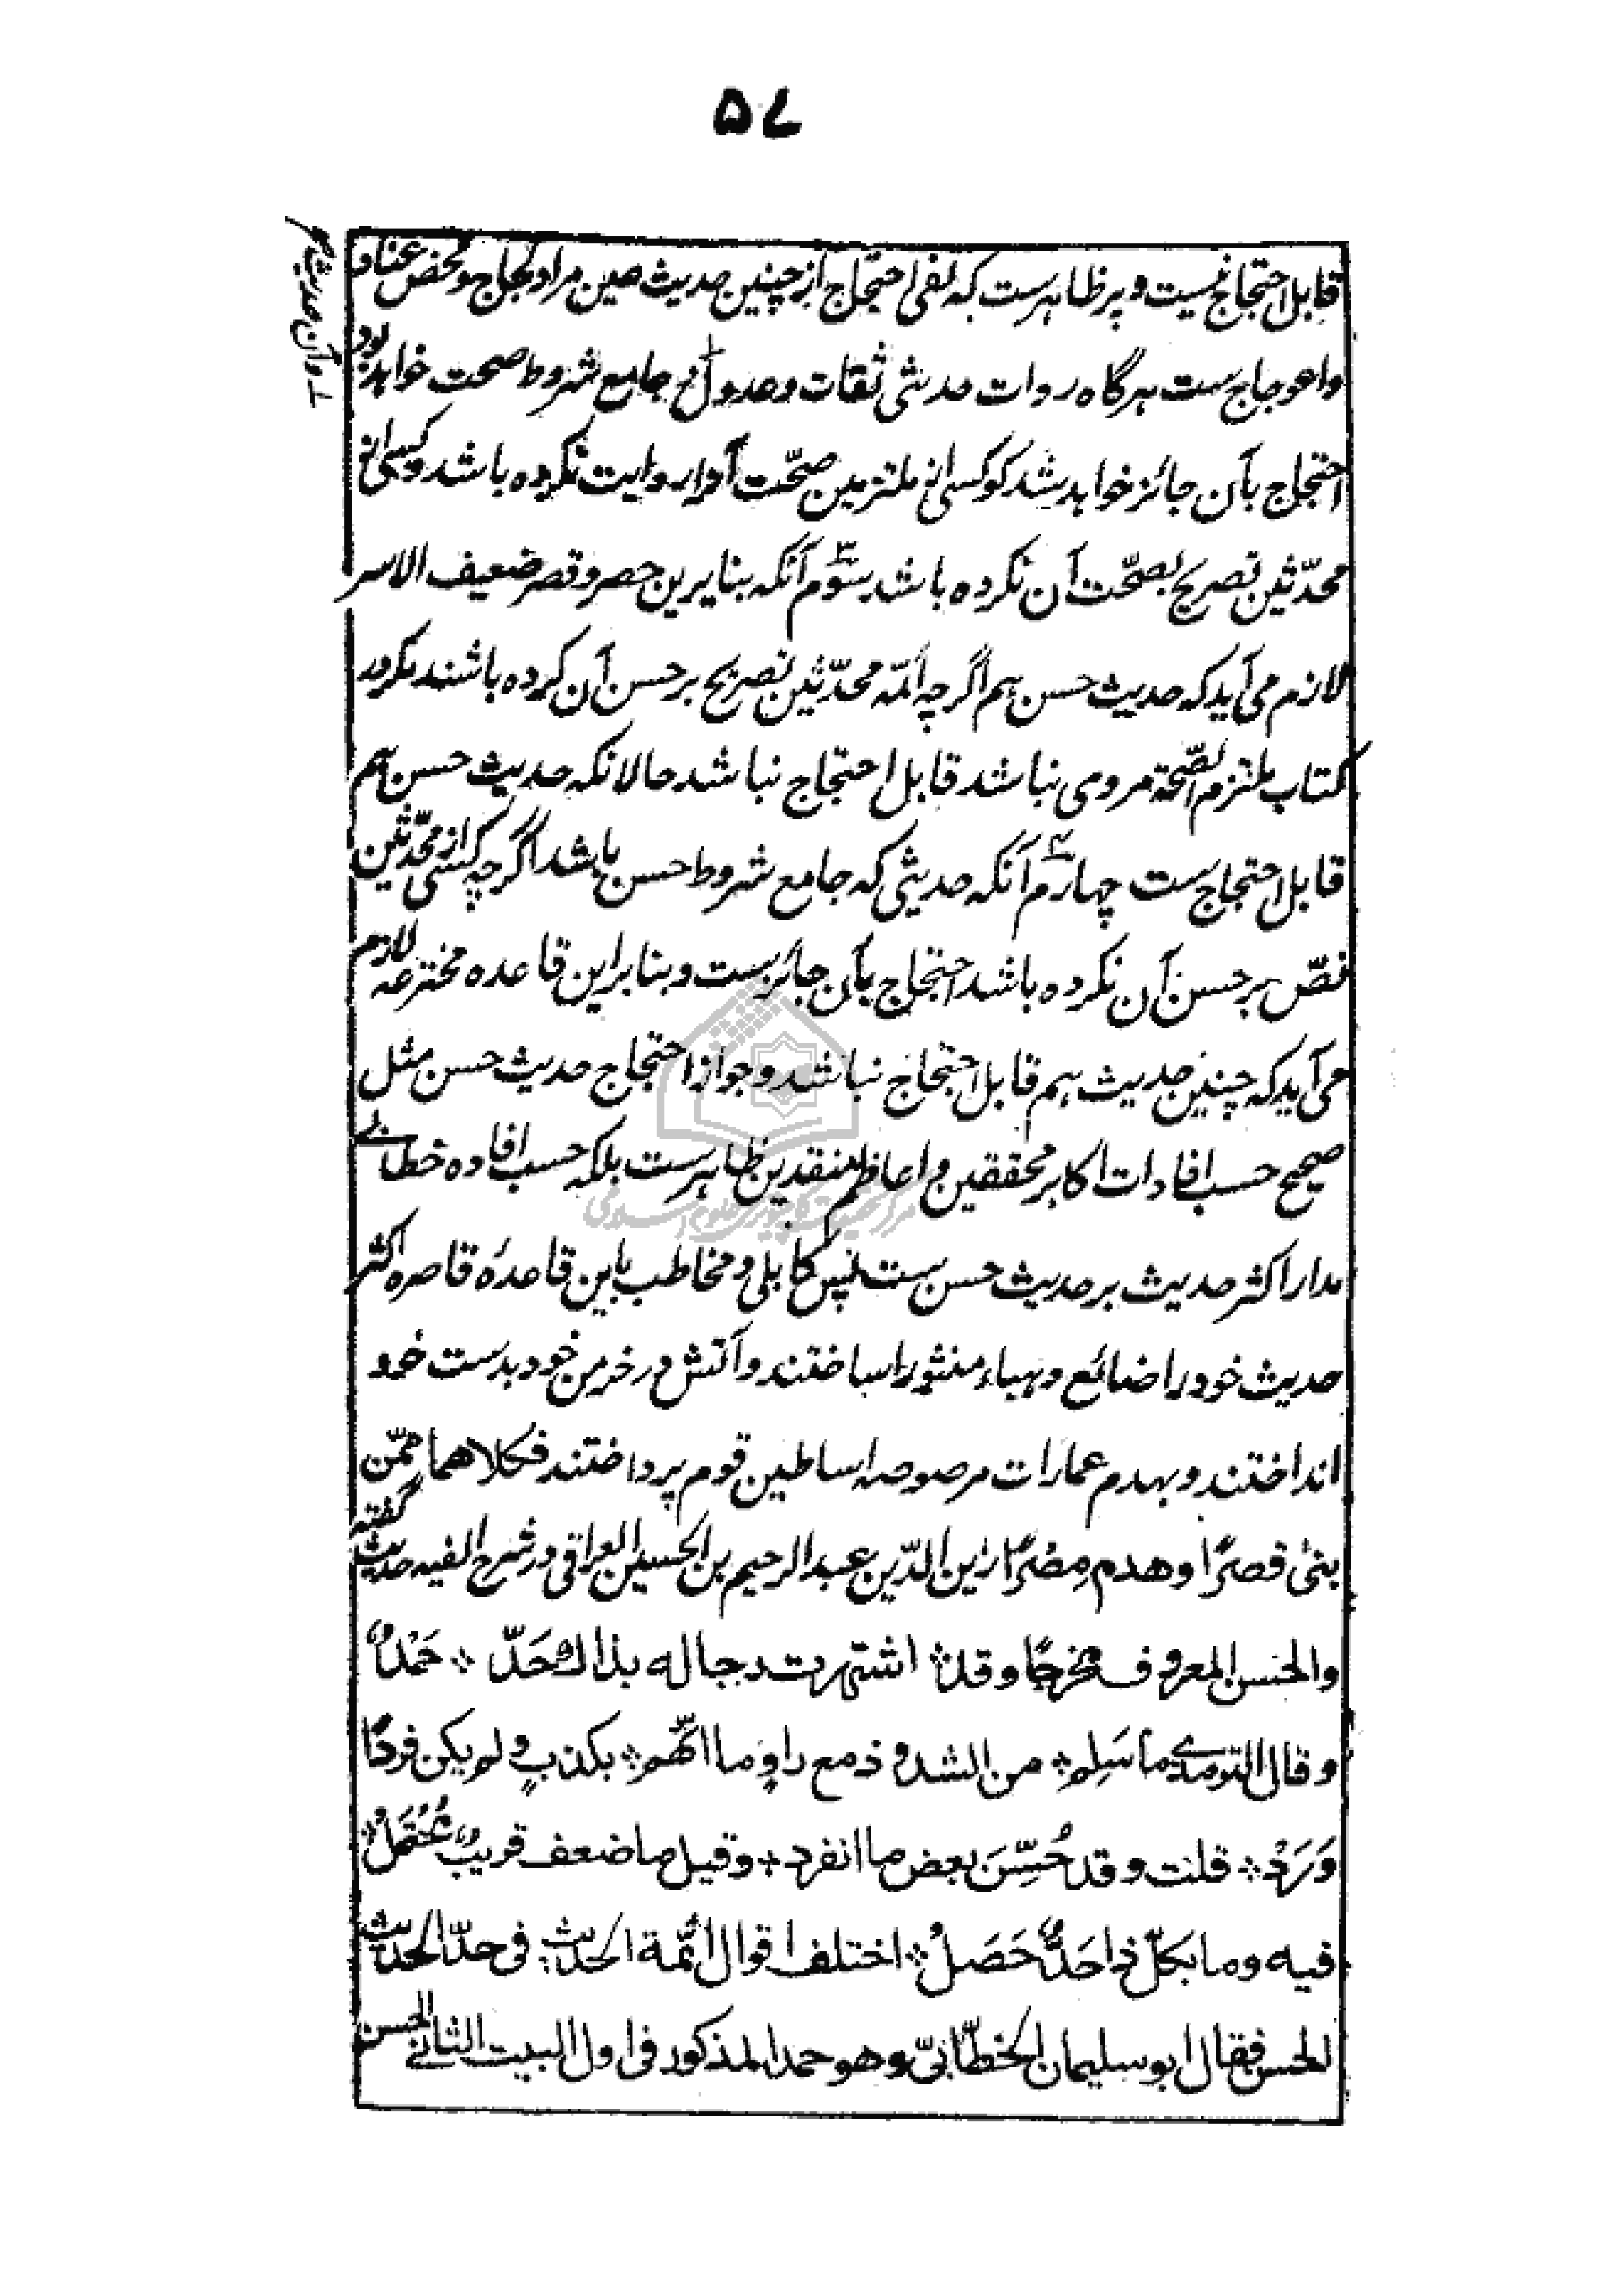 ۵۷
قابل احتجاج نیست و پر ظاهرست که نفی احتجاج از چنین حدیث عین مراد و لجاج و محض عناد
واعوجاج ست هرگاه روات حدیثی ثقات وعدول جامع شروط صحت خواهد بود
وآن حدیث هم
احتجاج بآن جائز خواهد شد گو کسی از ملتزمین صحّت آنرا روایت نکرده باشد و کسی از
محدّثین تصریح بصحّت آن نکرده باشد سوّم آنکه بنابرین حصر و قصر ضعیف الاسر
لازم می آید که حدیث حسن هم اگرچه ائمّه محدّثین تصریح بر حسن آن کرده باشند مگر در
کتاب ملتزم الصّحة مروی نباشد قابل احتجاج نباشد حالانکه حدیث حسن هم
قابل احتجاج ست چهارم آنکه حدیثی که جامع شروط حسن باشد اگرچه کسی از محدّثین
نصّ بر حسن آن نکرده باشد احتجاج بآن جائزست و بنابر این قاعده مخترعه لازم
می آید که چنین حدیث هم قابل احتجاج نباشد و جواز احتجاج حدیث حسن مثل
صحیح حسب افادات اکابر محققین و اعاظم منقدین ظاهرست بلکه حسب افاده خطابی
مدار اکثر حدیث بر حدیث حسن ست پس کابلی و مخاطب باین قاعدهٔ قاصره اکثر
حدیث خود را ضائع و هباء منثورا ساختند و آتش در خرمن خود بدست خود
انداختند و بهدم عمارات مرصوصه اساطین قوم پرداختند فکلاهما ممّن
بنی قصرًا وهدم مِصْرًا زین الدّین عبد الرحیم بن الحسین العراقی در شرح الفیه حدیث گفته
والحسن المعروف مخرجًا وقد اشتهرت رجاله بذاك حَدّ حَمْدٌ
وقال الترمذي ما سَلِم من الشذوذ مع راوٍ ما اتّهم بكذبٍ ولم يكن فردًا
وَرَدْ قلت وقد حُسِّنَ بعض ما انفرد وقيل ما ضعف قريبٌ مُحْتَمَلُ
فيه وما بكلّ ذا حَدٌّ حَصَلْ اختلف اقوال ائمّة الحديث فى حدّ الحديث
الحسن فقال ابو سليمان الخطّابىّ وهو حمد المذكور فى اول البيت الثانى الحسن